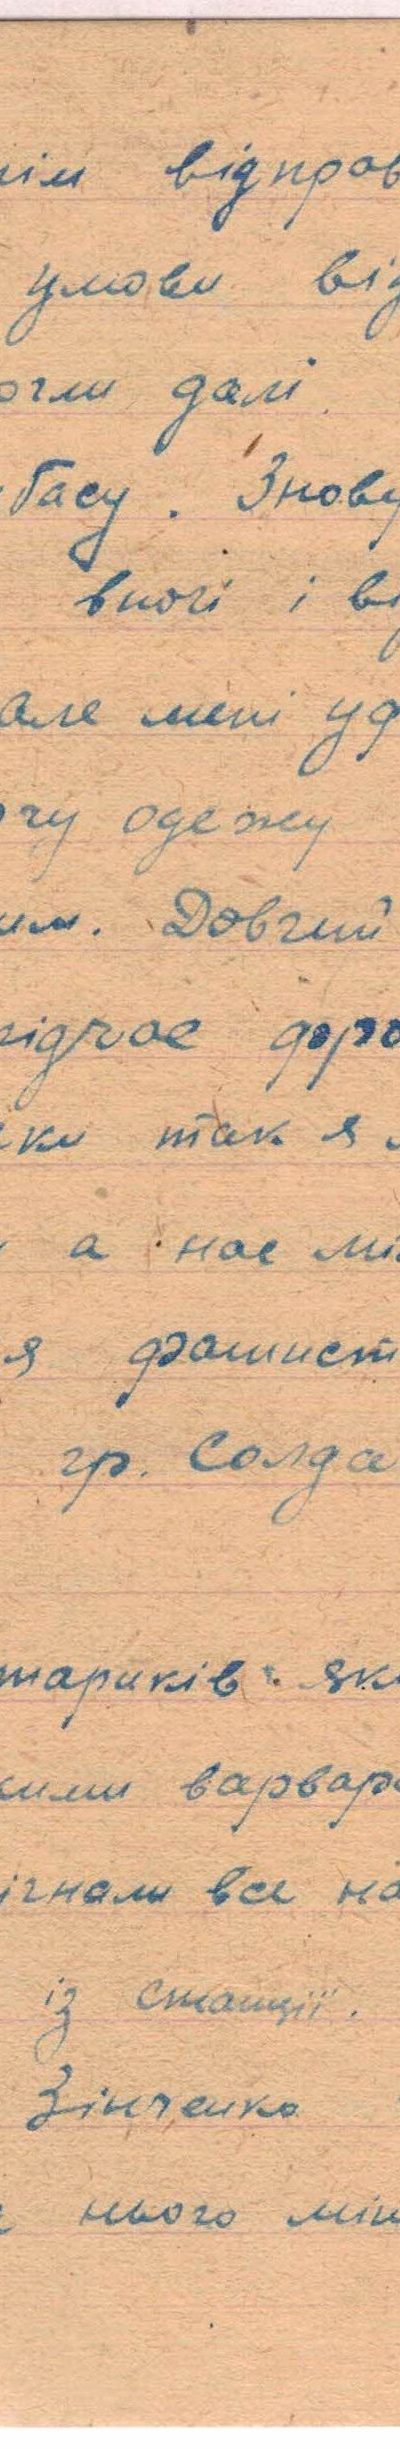 нім відпров
умови від
огли далі.
басу. Знову
вночі і ві
але мені уд
очу одежу
им. Довгий
підчас доро
ки так я
а нас мі
я фашист
гр. Солда
тариків як
кими варвар
ігнали все на
із станції.
Зінченко
нього мін